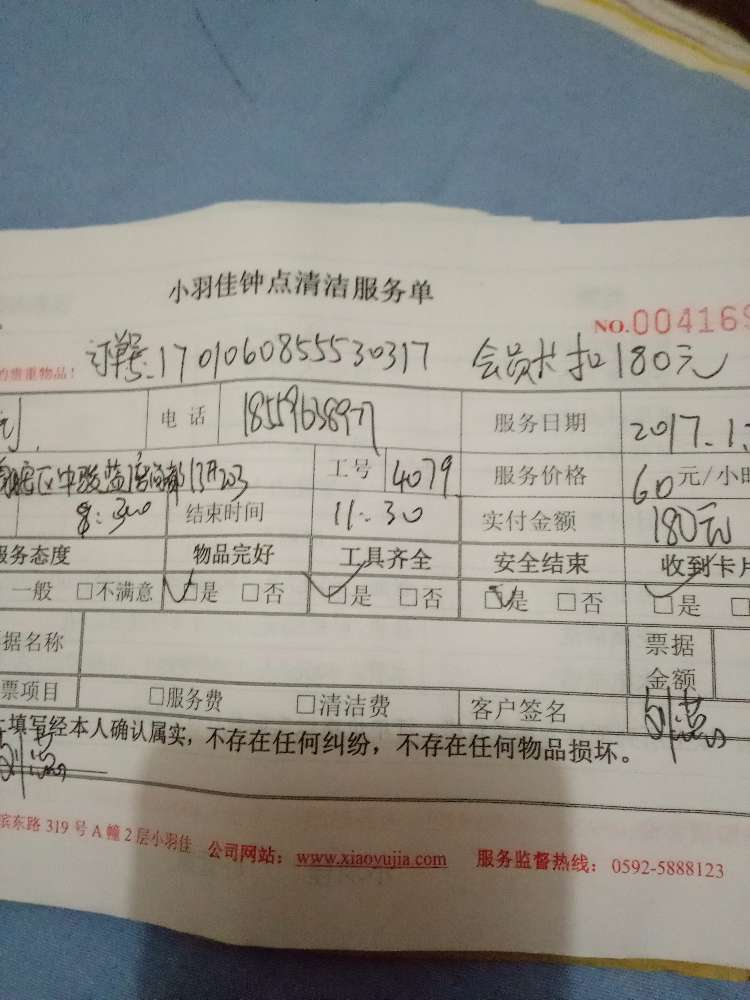 小羽佳钟点清洁服务单
NO.004169
的贵重物品! 订单号:1701060855530317 会员卡扣180元
电话 18559638977 服务日期 2017.1.
203 工号 4079 服务价格 60元/小时
8:30 结束时间 11:30 实付金额 180元
服务态度 物品完好 工具齐全 安全结束 收到卡片
一般 □不满意 □是 □否 □是 □否 □是 □否 □是 □
据名称 票据金额
票项目 □服务费 □清洁费 客户签名
填写经本人确认属实，不存在任何纠纷，不存在任何物品损坏。
滨东路319号A幢2层小羽佳 公司网站：www.xiaoyujia.com 服务监督热线：0592-5888123